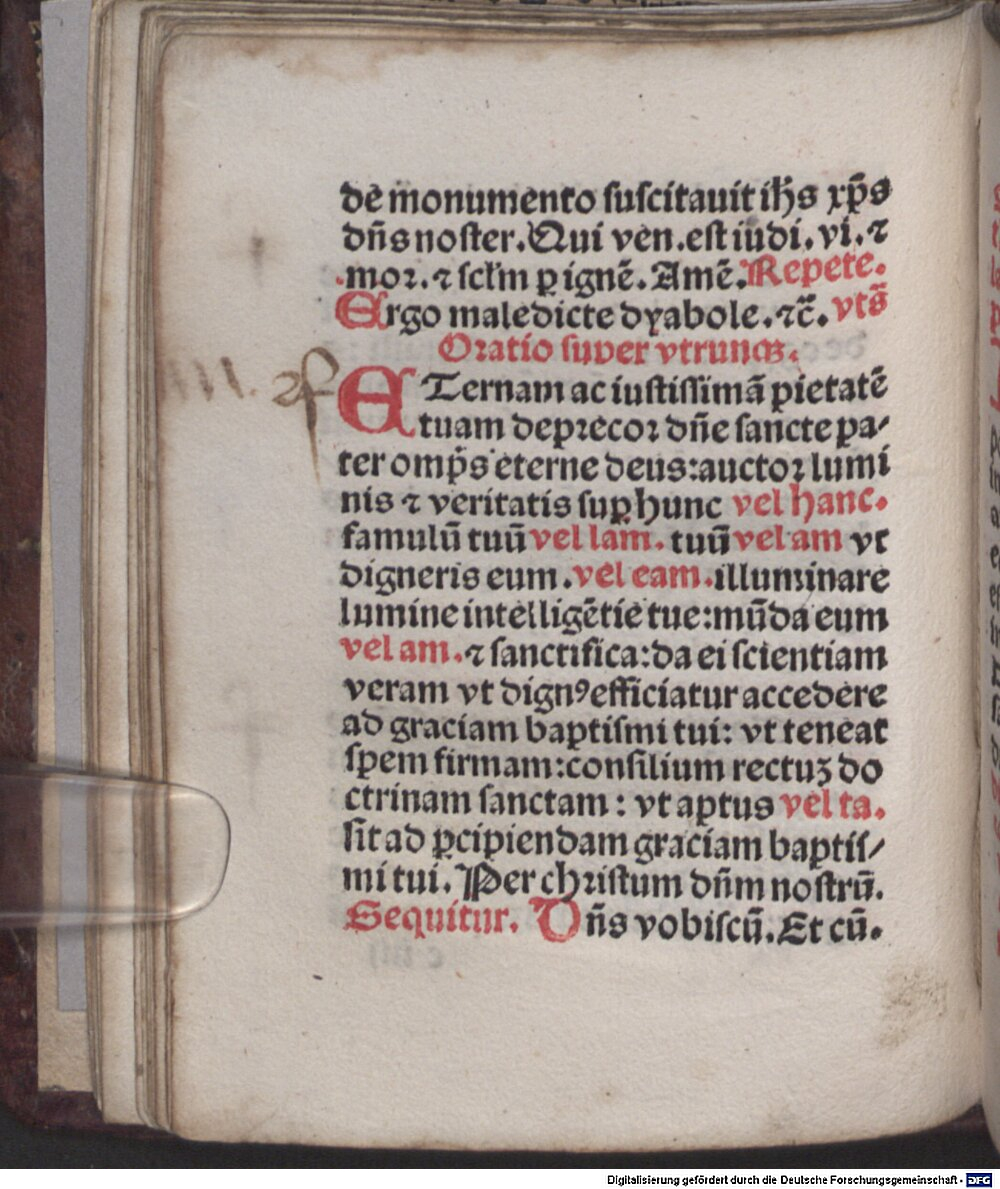 de monumento suscitauit ih̄s xp̄s
dn̄s noster. Qui ven. est iudi. vi. ⁊
.mor. ⁊ scl̄m ꝑ ignē. Amē. Repete.
Ergo maledicte dyabole. ⁊c̄. vts̄
Oratio super vtrunqꝫ.
ETernam ac iustissimā pietatē
tuam deprecor dn̄e sancte pa/
ter omp̄s eterne deus: auctor lumi
nis ⁊ veritatis suꝑ hunc vel hanc.
famulū tuū vel lam. tuū vel am vt
digneris eum. vel eam. illuminare
lumine intelligētie tue: mūda eum
vel am. ⁊ sanctifica: da ei scientiam
veram vt dignꝰ efficiatur accedere
ad graciam baptismi tui: vt teneat
spem firmam: consilium rectuꝫ do
ctrinam sanctam: vt aptus vel ta.
sit ad ꝑcipiendam graciam baptis/
mi tui. Per christum dn̄m nostrū.
Sequitur. Dn̄s vobiscū. Et cū.
Digitalisierung gefördert durch die Deutsche Forschungsgemeinschaft - DFG